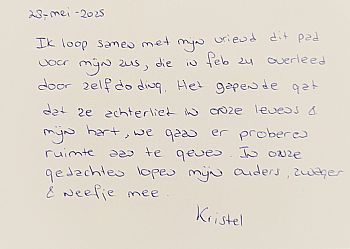 23-mei-2025
Ik loop samen met mijn vriend dit pad
voor mijn zus, die in feb 24 overleed
door zelfdoding. Het gapende gat
dat ze achterliet in onze levens &
mijn hart, we gaan er proberen
ruimte aan te geven. In onze
gedachten lopen mijn ouders, zwager
& neefje mee.
Kristel